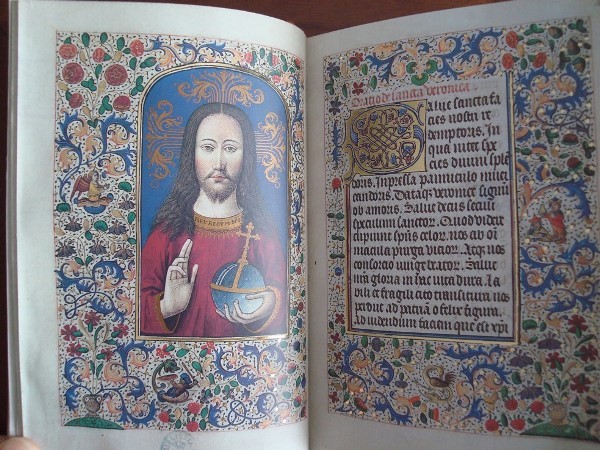 Oracio de sancta veronica
Salve sancta fa
cies nostri re
demptoris. In
qua nitet spe
cies divini sple
doris. Inpressa panniculo nivei
candoris. Dataque veronice signu
ob amoris. Salve decus seculi
speculum sanctor. Quod videre
cupiunt spus celor. nos ab omi
macula purga vicior. Atque nos
consorcio iunge beator. Salve
nra gloria in hac vita dura. La
bili et fragili cito transitura nos
perduc ad patriam o felix figura.
Ad videndum faciem que est xpi